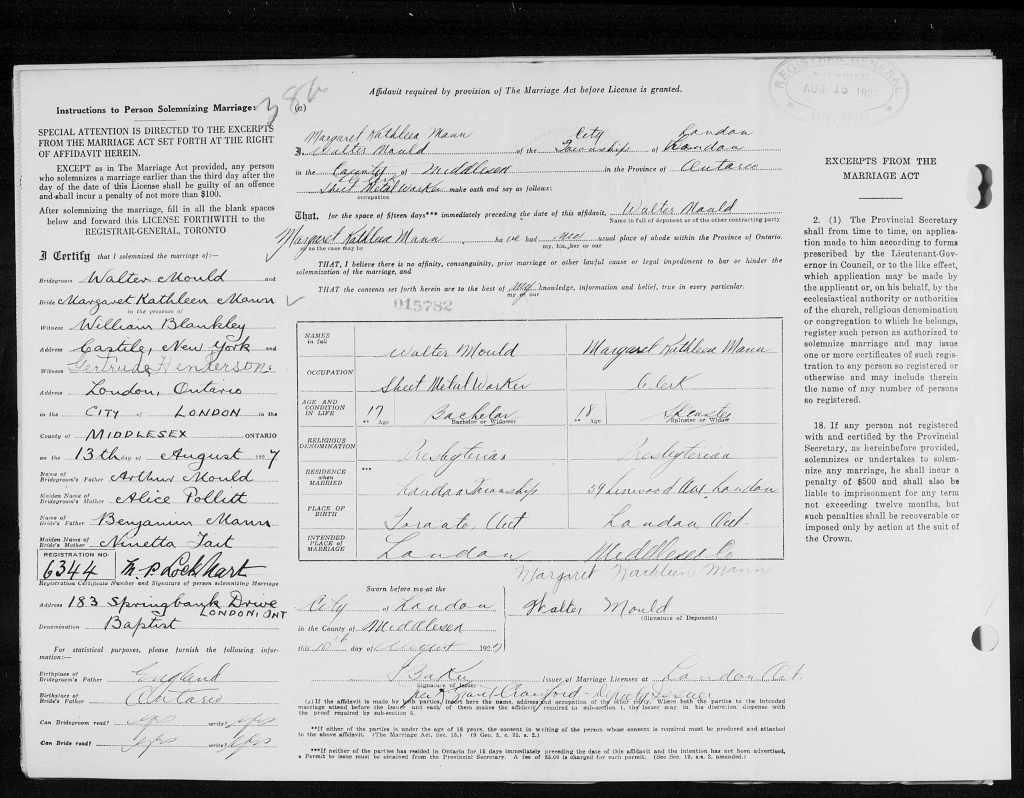 386
Instructions to Person Solemnizing Marriage:
SPECIAL ATTENTION IS DIRECTED TO THE EXCERPTS
FROM THE MARRIAGE ACT SET FORTH AT THE RIGHT
OF AFFIDAVIT HEREIN.
EXCEPT as in The Marriage Act provided, any person
who solemnizes a marriage earlier than the third day after the
day of the date of this License shall be guilty of an offence
and shall incur a penalty of not more than $100.
After solemnizing the marriage, fill in all the blank spaces
below and forward this LICENSE FORTHWITH to the
REGISTRAR-GENERAL, TORONTO
I Certify that I solemnized the marriage of:—
Bridegroom Walter Mould and
Bride Margaret Kathleen Mann
in the presence of
Witness William Blankley
Address Castile, New York and
Witness Gertrude Henderson
Address London, Ontario
in the CITY of LONDON in the
County of MIDDLESEX ONTARIO
on the 13th day of August 1927
Name of Bridegroom's Father Arthur Mould
Maiden Name of Bridegroom's Mother Alice Pollett
Name of Bride's Father Benjamin Mann
Maiden Name of Bride's Mother Ninetta Tait
REGISTRATION NO. 6344 M. P. Lockhart
Registration Certificate Number and Signature of person solemnizing Marriage
Address 183 Springbank Drive
LONDON, ONT
Denomination Baptist
For statistical purposes, please furnish the following infor-
mation:—
Birthplace of Bridegroom's Father England
Birthplace of Bride's Father Ontario
Can Bridegroom read? yes write? yes
Can Bride read? yes write? yes
Affidavit required by provision of The Marriage Act before License is granted.
(c)
Margaret Kathleen Mann City London
I, Walter Mould of the Township of London
in the County of Middlesex in the Province of Ontario
Sheet Metal Worker make oath and say as follows:
occupation
That, for the space of fifteen days*** immediately preceding the date of this affidavit, Walter Mould
Name in full of deponent or of the other contracting party
Margaret Kathleen Mann, ha ve had our usual place of abode within the Province of Ontario.
as the case may be my, his, her or our
THAT, I believe there is no affinity, consanguinity, prior marriage or other lawful cause or legal impediment to bar or hinder the
solemnization of the marriage, and
THAT the contents set forth herein are to the best of my knowledge, information and belief, true in every particular.
my or our
015782
NAMES in full Walter Mould Margaret Kathleen Mann
OCCUPATION Sheet Metal Worker Clerk
AGE AND CONDITION IN LIFE 17 Bachelor 18 Spinster
** Age Bachelor or Widower ** Age Spinster or Widow
RELIGIOUS DENOMINATION Presbyterian Presbyterian
RESIDENCE WHEN MARRIED *** London Township 59 Linwood Ave. London
PLACE OF BIRTH Toronto, Ont London Ont
INTENDED PLACE OF MARRIAGE London Middlesex Co
Margaret Kathleen Mann
Sworn before me at the
City of London Walter Mould
(Signature of Deponent)
in the County of Middlesex
this 10th day of August 1927
Baker Issuer of Marriage Licenses at London Ont.
Signature of Issuer
Crawford - Deputy Issuer
(c) If the affidavit is made by both parties, insert here the name, address and occupation of the other party. Where both the parties to the intended
marriage attend before the issuer and each of them makes the affidavit required in sub-section 1, the issuer may in his discretion dispense with
the proof required by sub-section 5.
**If either of the parties is under the age of 18 years, the consent in writing of the person whose consent is required must be produced and attached
to the above affidavit. (The Marriage Act, Sec. 15.)
***If neither of the parties has resided in Ontario for 15 days immediately preceding the date of this affidavit and the intention has not been advertised,
a Permit to issue must be obtained from the Provincial Secretary. A fee of $5.00 is charged for such permit.
REGISTRAR GENERAL
AUG 16
EXCERPTS FROM THE
MARRIAGE ACT
2. (1) The Provincial Secretary
shall from time to time, on applica-
tion made to him according to forms
prescribed by the Lieutenant-Gover-
nor in Council, or to the like effect,
which application may be made by
the applicant or, on his behalf, by the
ecclesiastical authority or authorities
of the church, religious denomination
or congregation to which he belongs,
register such person as authorized to
solemnize marriage and may issue
one or more certificates of such regis-
tration to any person so registered or
otherwise and may include therein
the name of any number of persons
so registered.
18. If any person not registered
with and certified by the Provincial
Secretary, as hereinbefore provided,
solemnizes or undertakes to solem-
nize any marriage, he shall incur a
penalty of $500 and shall also be
liable to imprisonment for any term
not exceeding twelve months, but
such penalties shall be recoverable or
imposed only by action at the suit of
the Crown.